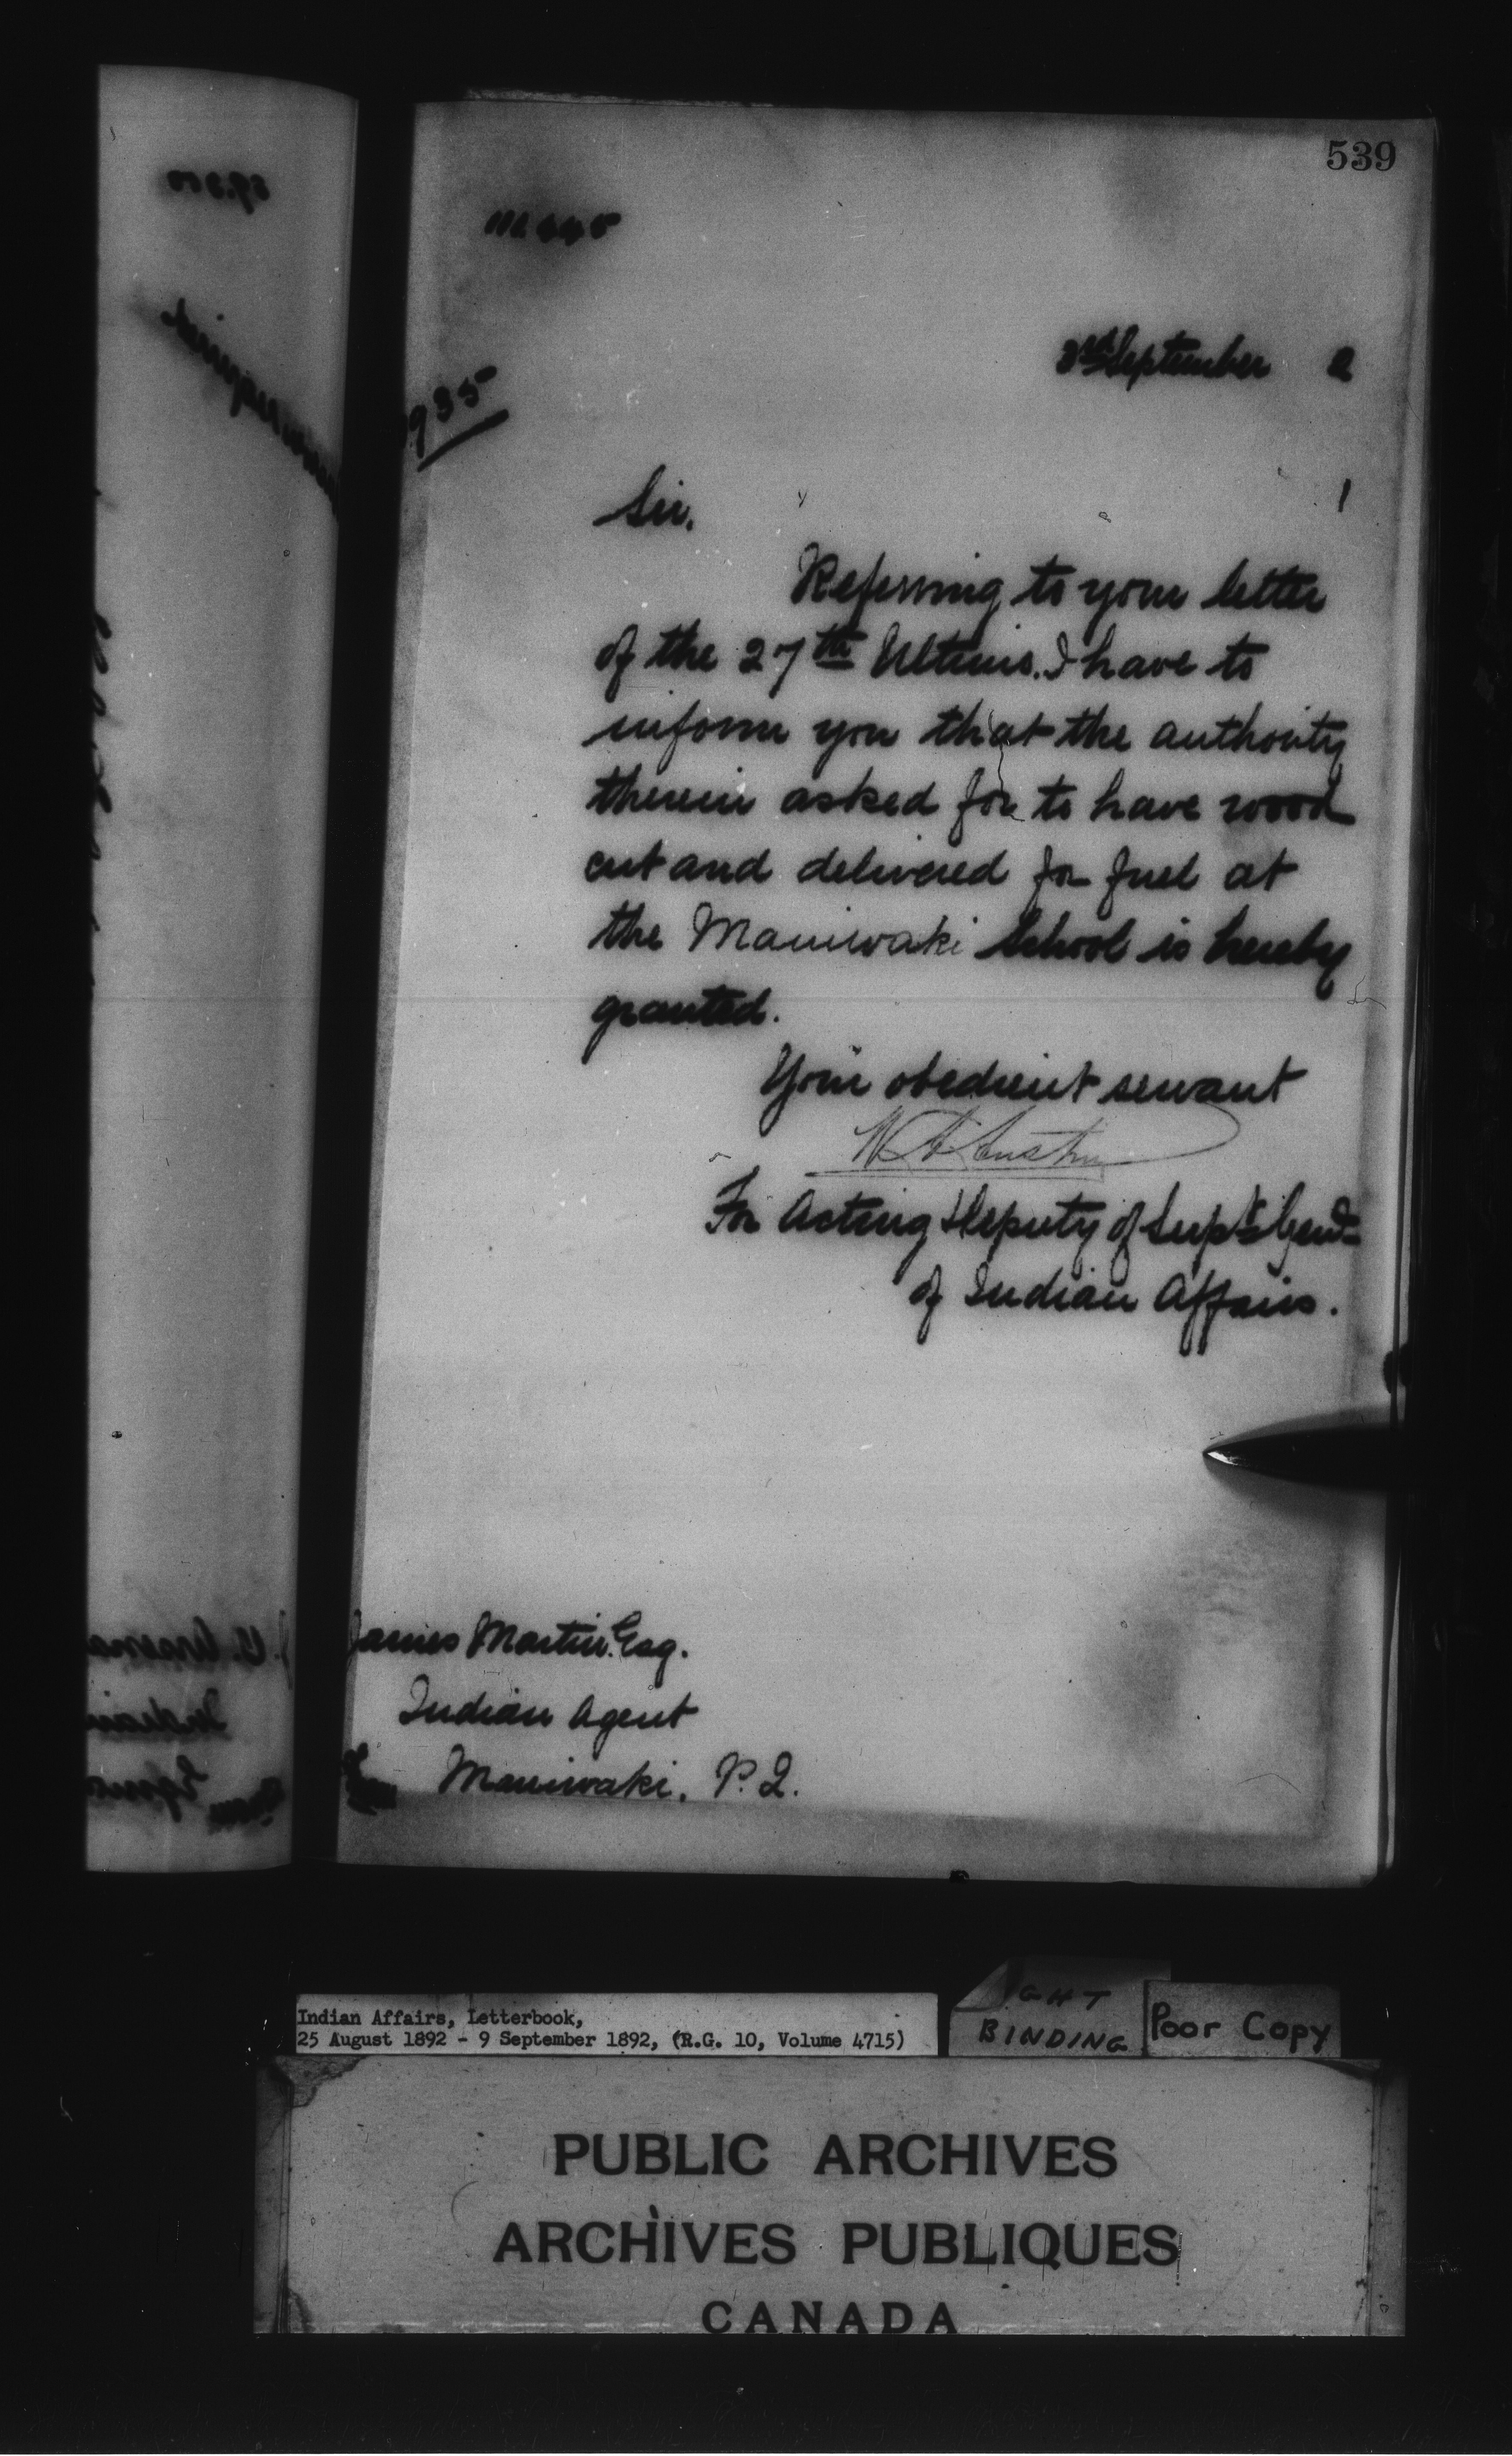 539
935
September 2
Sir,
Referring to your letter
of the 27th Ultimo. I have to
inform you that the authority
therein asked for to have wood
cut and delivered for fuel at
the Maniwaki School is hereby
granted.
Your obedient servant
For Acting Deputy of Supt. Genl.
of Indian Affairs.
James Martin. Esq.
Indian Agent
Maniwaki, P.Q.
Indian Affairs, Letterbook,
25 August 1892 - 9 September 1892, (R.G. 10, Volume 4715)
GHT
BINDING
Poor Copy
PUBLIC ARCHIVES
ARCHIVES PUBLIQUES
CANADA